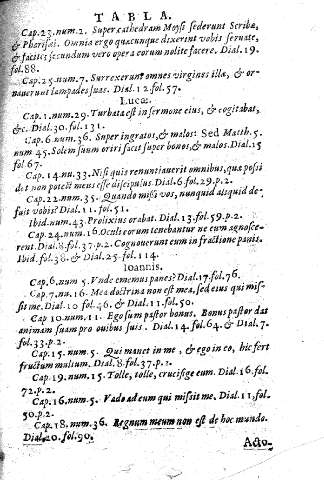 TABLA.
Cap.23.num.2. Super cathedram Moysi sederunt Scribæ,
& Pharisæi. Omnia ergo quæcunque dixerint vobis seruate,
& facite: secundum vero opera eorum nolite facere. Dial.19.
fol.88.
Cap.25.num.7. Surrexerunt omnes virgines illæ, & or-
nauerunt lampades suas. Dial.12.fol.57.
Lucæ.
Cap.1.num.29. Turbata est in sermone eius, & cogitabat,
&c. Dial.30.fol.131.
Cap.6.num.36. Super ingratos, & malos: Sed Matth.5.
num 45. Solem suum oriri facit super bonos, & malos. Dial.15
fol.67.
Cap.14.nu.33. Nisi quis renuntiauerit omnibus, quæ possi
det non potest meus esse discipulus Dial.6.fol.29.p.2.
Cap.22.nnm.35. Quando misi vos, nunquid aliquid de-
fuit vobis? Dial.11.fol.51.
Ibid.num.43. Prolixius orabat. Dial.13.fol.59.p.2.
Cap.24.num.16. Oculi eorum tenebantur ne eum agnosce-
rent. Dial.8.fol.37.p.2. Cognouerunt eum in fractione panis.
Ibid.fol.38. & Dial.25.fol.114.
Ioannis.
Cap.6.num 5. Vnde ememus panes? Dial.17.fol.76.
Cap.7.nu.16. Mea doctrina non est mea, sed eius qui mis-
sit me. Dial.10 fol.46. & Dial.11.fol.50.
Cap 10.num.11. Ego sum pastor bonus. Bonus pastor dat
animam suam pro ouibus suis. Dial.14.fol.64. & Dial.7.
fol.33.p.2.
Cap.15.num.5. Qui manet in me, & ego in eo, hic fert
fructum multum. Dial.8.fol.37.p.2.
Cap.19.num.15. Tolle, tolle, crucifige eum. Dial.16.fol.
72.p.2.
Cap.16.num.5. Vado ad eum qui misit me. Dial.11.fol.
50.p.2.
Cap.18.num.36. Regnum meum non est de hoc mundo.
Dial.20.fol.90.
Acto-